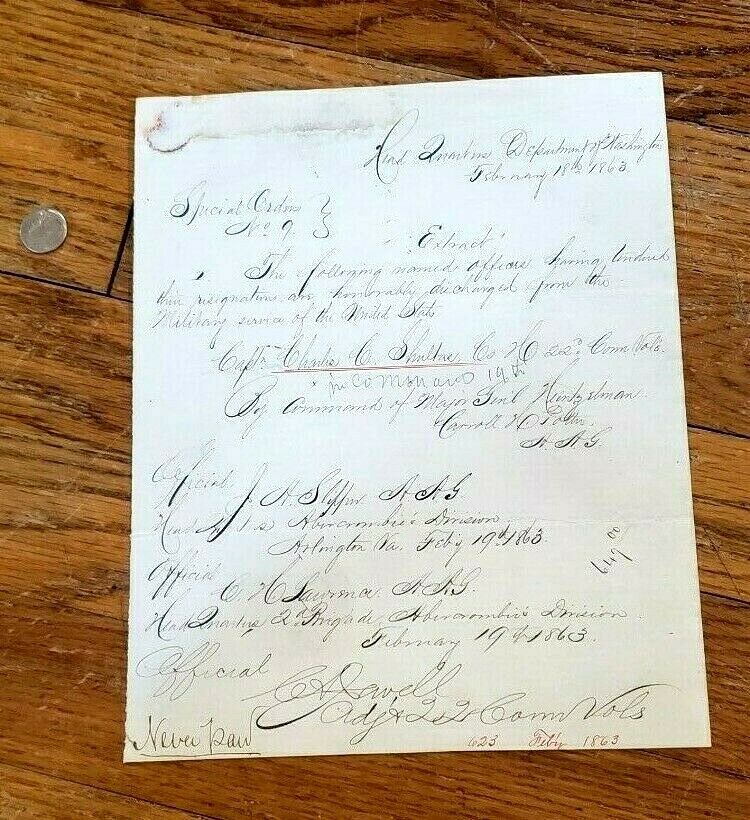 Head Quarters Department of Washington
February 18th 1863.
Special Orders
No 9.
"Extract"
The following named officers having tendered
their resignations are honorably discharged from the
Military service of the United States
Captn Charles C. Co H 22d Conn Vols.
in Command 19th
By Command of Major Genl Heintzelman
Carroll H Potter
A. A. G.
Official
J. H. A A G
Head Abercrombie's Division
Arlington Va. Feby 19th 1863.
Official
C H Lawrence A.A.G.
Head Quarters 2d Brigade, Abercrombie's Division.
February 19th 1863.
649 00
Official
C A Jewell
Adjt 22d Conn Vols
Never Paid
623 Feb'y 1863